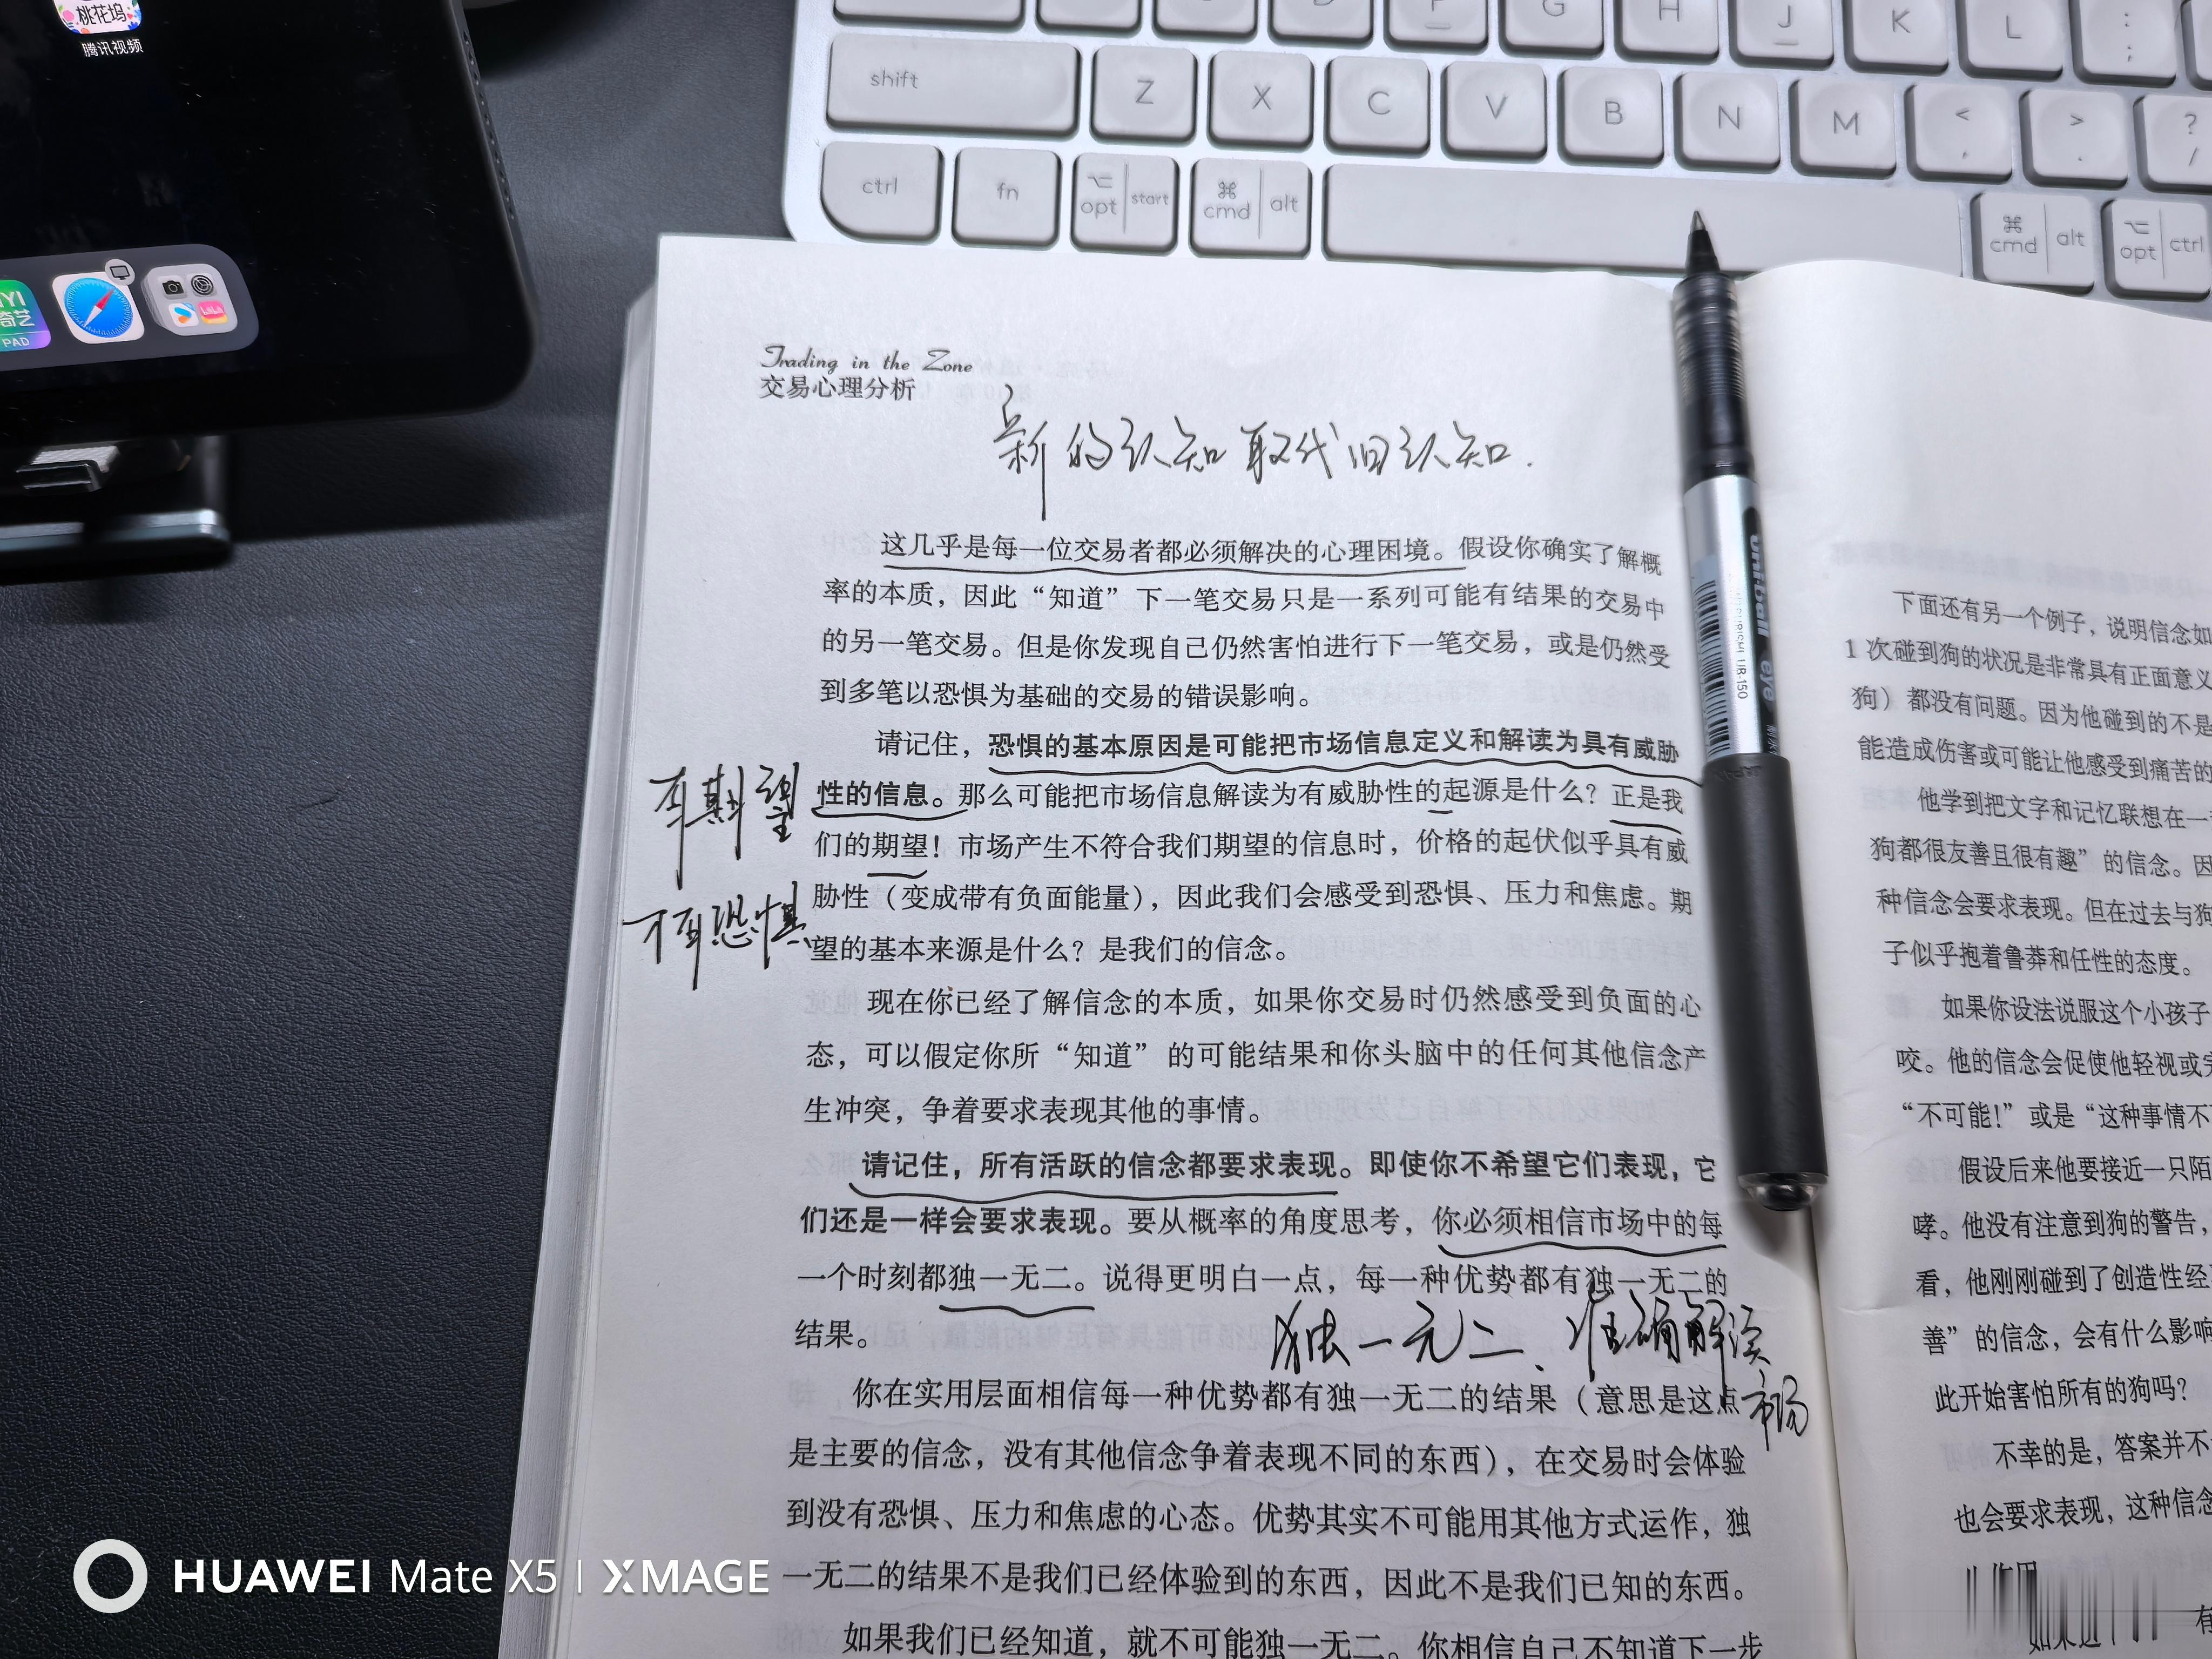 桃花坞
腾讯视频
PAD
D
F
G
H
J
K
L
:
;
shift
Z
X
C
V
B
N
M
<
,
>
.
?
/
ctrl
fn
⌥
opt
start
⌘
cmd
alt
⌘
cmd
alt
⌥
opt
ctrl
Trading in the Zone
交易心理分析
新的认知取代旧认知.
这几乎是每一位交易者都必须解决的心理困境。假设你确实了解概
率的本质，因此“知道”下一笔交易只是一系列可能有结果的交易中
的另一笔交易。但是你发现自己仍然害怕进行下一笔交易，或是仍然受
到多笔以恐惧为基础的交易的错误影响。
请记住，恐惧的基本原因是可能把市场信息定义和解读为具有威胁
性的信息。那么可能把市场信息解读为有威胁性的起源是什么？正是我
们的期望！市场产生不符合我们期望的信息时，价格的起伏似乎具有威
胁性（变成带有负面能量），因此我们会感受到恐惧、压力和焦虑。期
望的基本来源是什么？是我们的信念。
有期望
才有恐惧
现在你已经了解信念的本质，如果你交易时仍然感受到负面的心
态，可以假定你所“知道”的可能结果和你头脑中的任何其他信念产
生冲突，争着要求表现其他的事情。
请记住，所有活跃的信念都要求表现。即使你不希望它们表现，它
们还是一样会要求表现。要从概率的角度思考，你必须相信市场中的每
一个时刻都独一无二。说得更明白一点，每一种优势都有独一无二的
结果。
独一无二、准确解读
市场
你在实用层面相信每一种优势都有独一无二的结果（意思是这点
是主要的信念，没有其他信念争着表现不同的东西），在交易时会体验
到没有恐惧、压力和焦虑的心态。优势其实不可能用其他方式运作，独
一无二的结果不是我们已经体验到的东西，因此不是我们已知的东西。
如果我们已经知道，就不可能独一无二。你相信自己不知道下一步
uni-ball eye
UB-150
下面还有另一个例子，说明信念如
1 次碰到狗的状况是非常具有正面意义
狗）都没有问题。因为他碰到的不是
能造成伤害或可能让他感受到痛苦的
他学到把文字和记忆联想在一
狗都很友善且很有趣”的信念。因
种信念会要求表现。但在过去与狗
子似乎抱着鲁莽和任性的态度。
如果你设法说服这个小孩子
咬。他的信念会促使他轻视或完
“不可能！”或是“这种事情不
假设后来他要接近一只陌
哮。他没有注意到狗的警告，
看，他刚刚碰到了创造性经
善”的信念，会有什么影响
此开始害怕所有的狗吗？
不幸的是，答案并不
也会要求表现，这种信念
有
HUAWEI Mate X5 | XMAGE